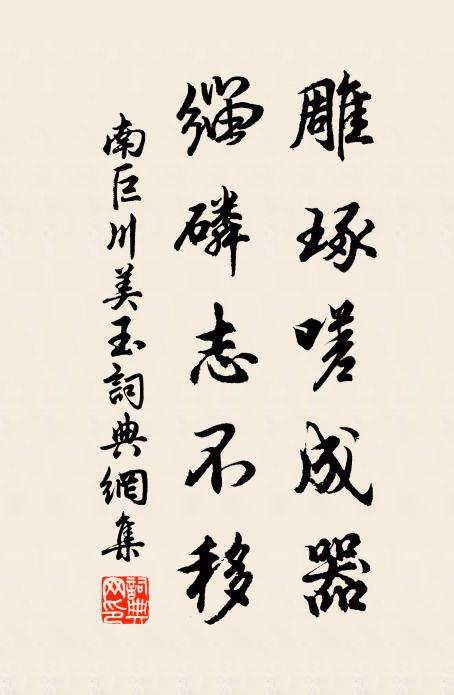 雕琢嗟成器
緇磷志不移
南巨川美玉詞典網集
詞典網印